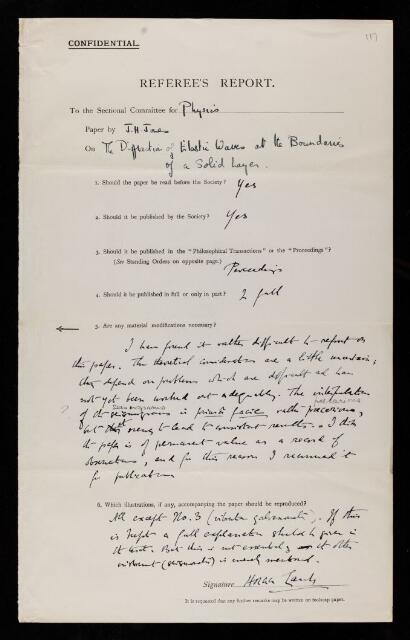 CONFIDENTIAL.
117
REFEREE'S REPORT.
To the Sectional Committee for Physics
Paper by J. H. Jones
On The Diffraction of Elastic Waves at the Boundaries
of a Solid Layer.
1. Should the paper be read before the Society? Yes
2. Should it be published by the Society? Yes
3. Should it be published in the "Philosophical Transactions" or the "Proceedings"?
(See Standing Orders on opposite page.)
Proceedings
4. Should it be published in full or only in part? In full
5. Are any material modifications necessary?
I have found it rather difficult to report on
this paper. The theoretical considerations are a little uncertain;
they depend on problems which are difficult and have
not yet been worked out adequately. The interpretation
? of the seismograms is primâ facie rather precarious,
but seems to lead to consistent results. I think
the paper is of permanent value as a record of
observations, and for this reason I recommend it
for publication
6. Which illustrations, if any, accompanying the paper should be reproduced?
All except No. 3 (vibration galvanometer). If this
is kept a full explanation should be given in
the text. But this is not essential, as the other
instrument (seismometer) is merely mentioned.
Signature Horace Lamb
It is requested that any further remarks may be written on foolscap paper.